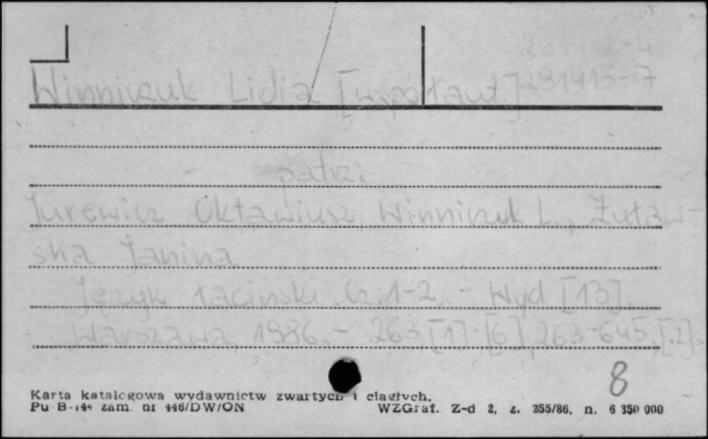 Winniczuk Lidia [współaut.] 291413-7
patrz:
Jurewicz Oktawiusz, Winniczuk L., Żuław-
ska Janina
Język łaciński Cz. 1-2. - Wyd [13].
Warszawa, 1986. - 263,[1]; [6], 263-645,[2].
8
Karta katalogowa wydawnictw zwartych i ciągłych.
Pu B-14 zam. nr 446/DW/ON WZGraf. Z-d 2, z. 255/86, n. 6 350 000